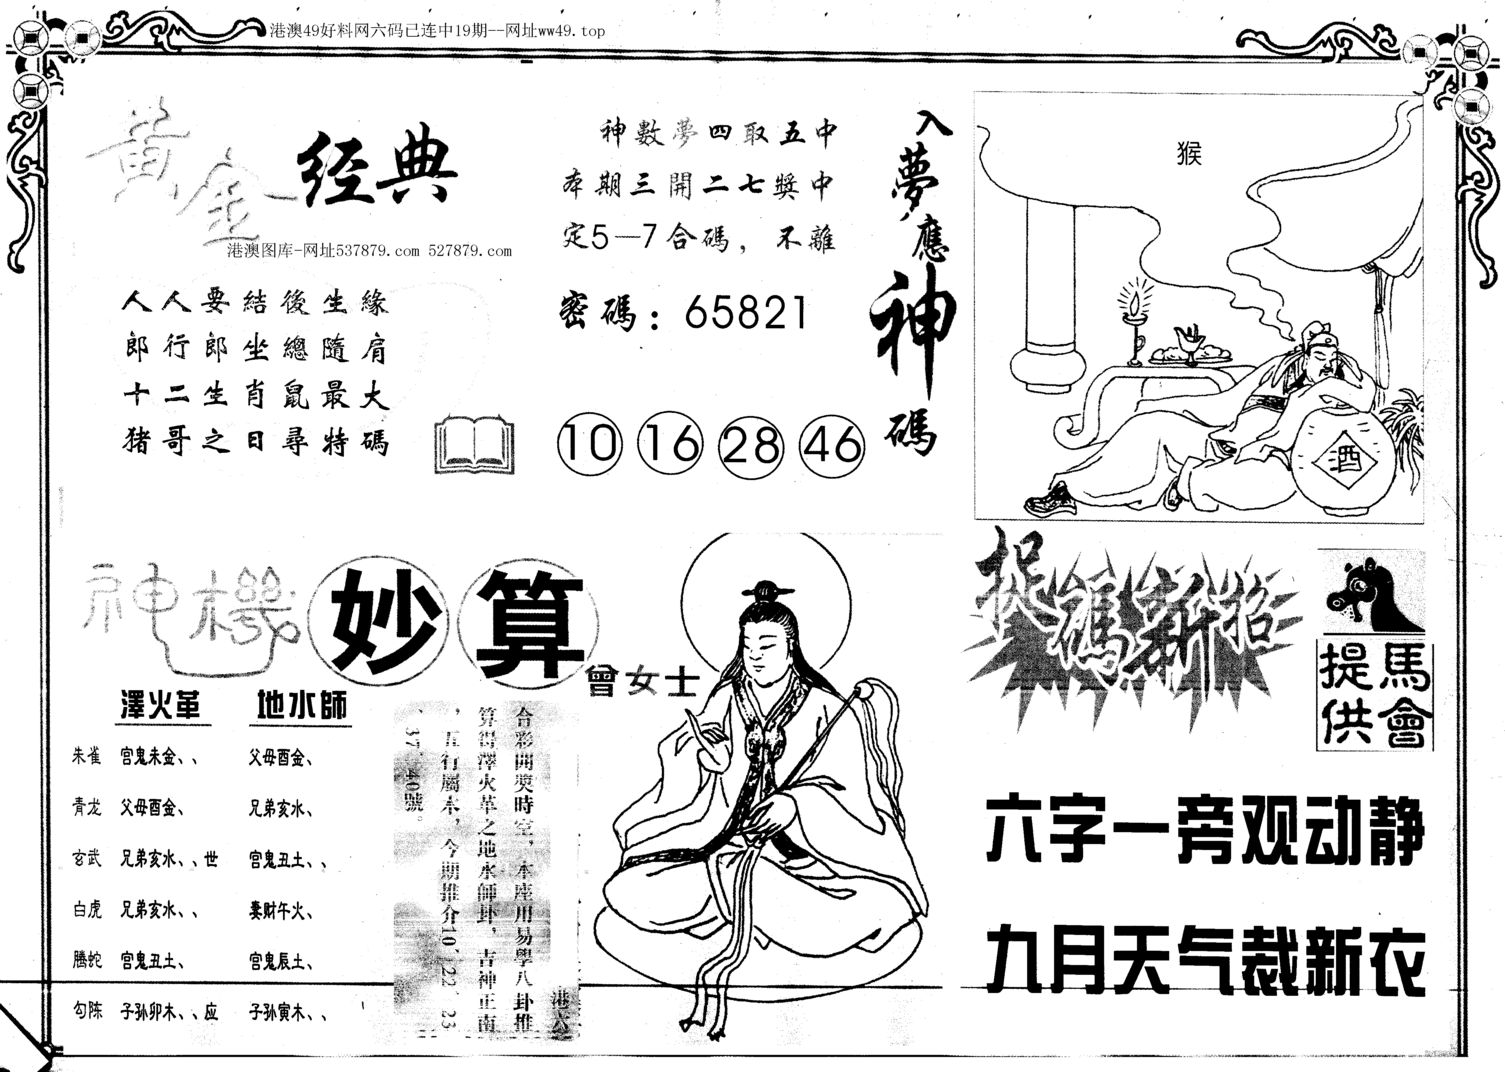 港澳49好料网六码已连中19期--网址ww49.top
黄金经典
港澳图库-网址537879.com 527879.com
人人要結後生緣
郎行郎坐總隨肩
十二生肖鼠最大
猪哥之日尋特碼
神數夢四取五中
本期三開二七獎中
定5—7合碼，不離
密碼：65821
10 16 28 46
入夢應神碼
猴
酒
神機妙算
曾女士
澤火革 地水師
朱雀 官鬼未金、、 父母酉金、
青龙 父母酉金、 兄弟亥水、
玄武 兄弟亥水、、世 官鬼丑土、、
白虎 兄弟亥水、、 妻財午火、
腾蛇 官鬼丑土、 官鬼辰土、
勾陈 子孙卯木、、应 子孙寅木、、
港六
合彩開獎時空，本座用易學八卦推
算得澤火革之地水師卦，吉神正南
，五行屬木，今期推介10、22、23
、37、40號。
捉碼新招
馬會
提供
六字一旁观动静
九月天气裁新衣